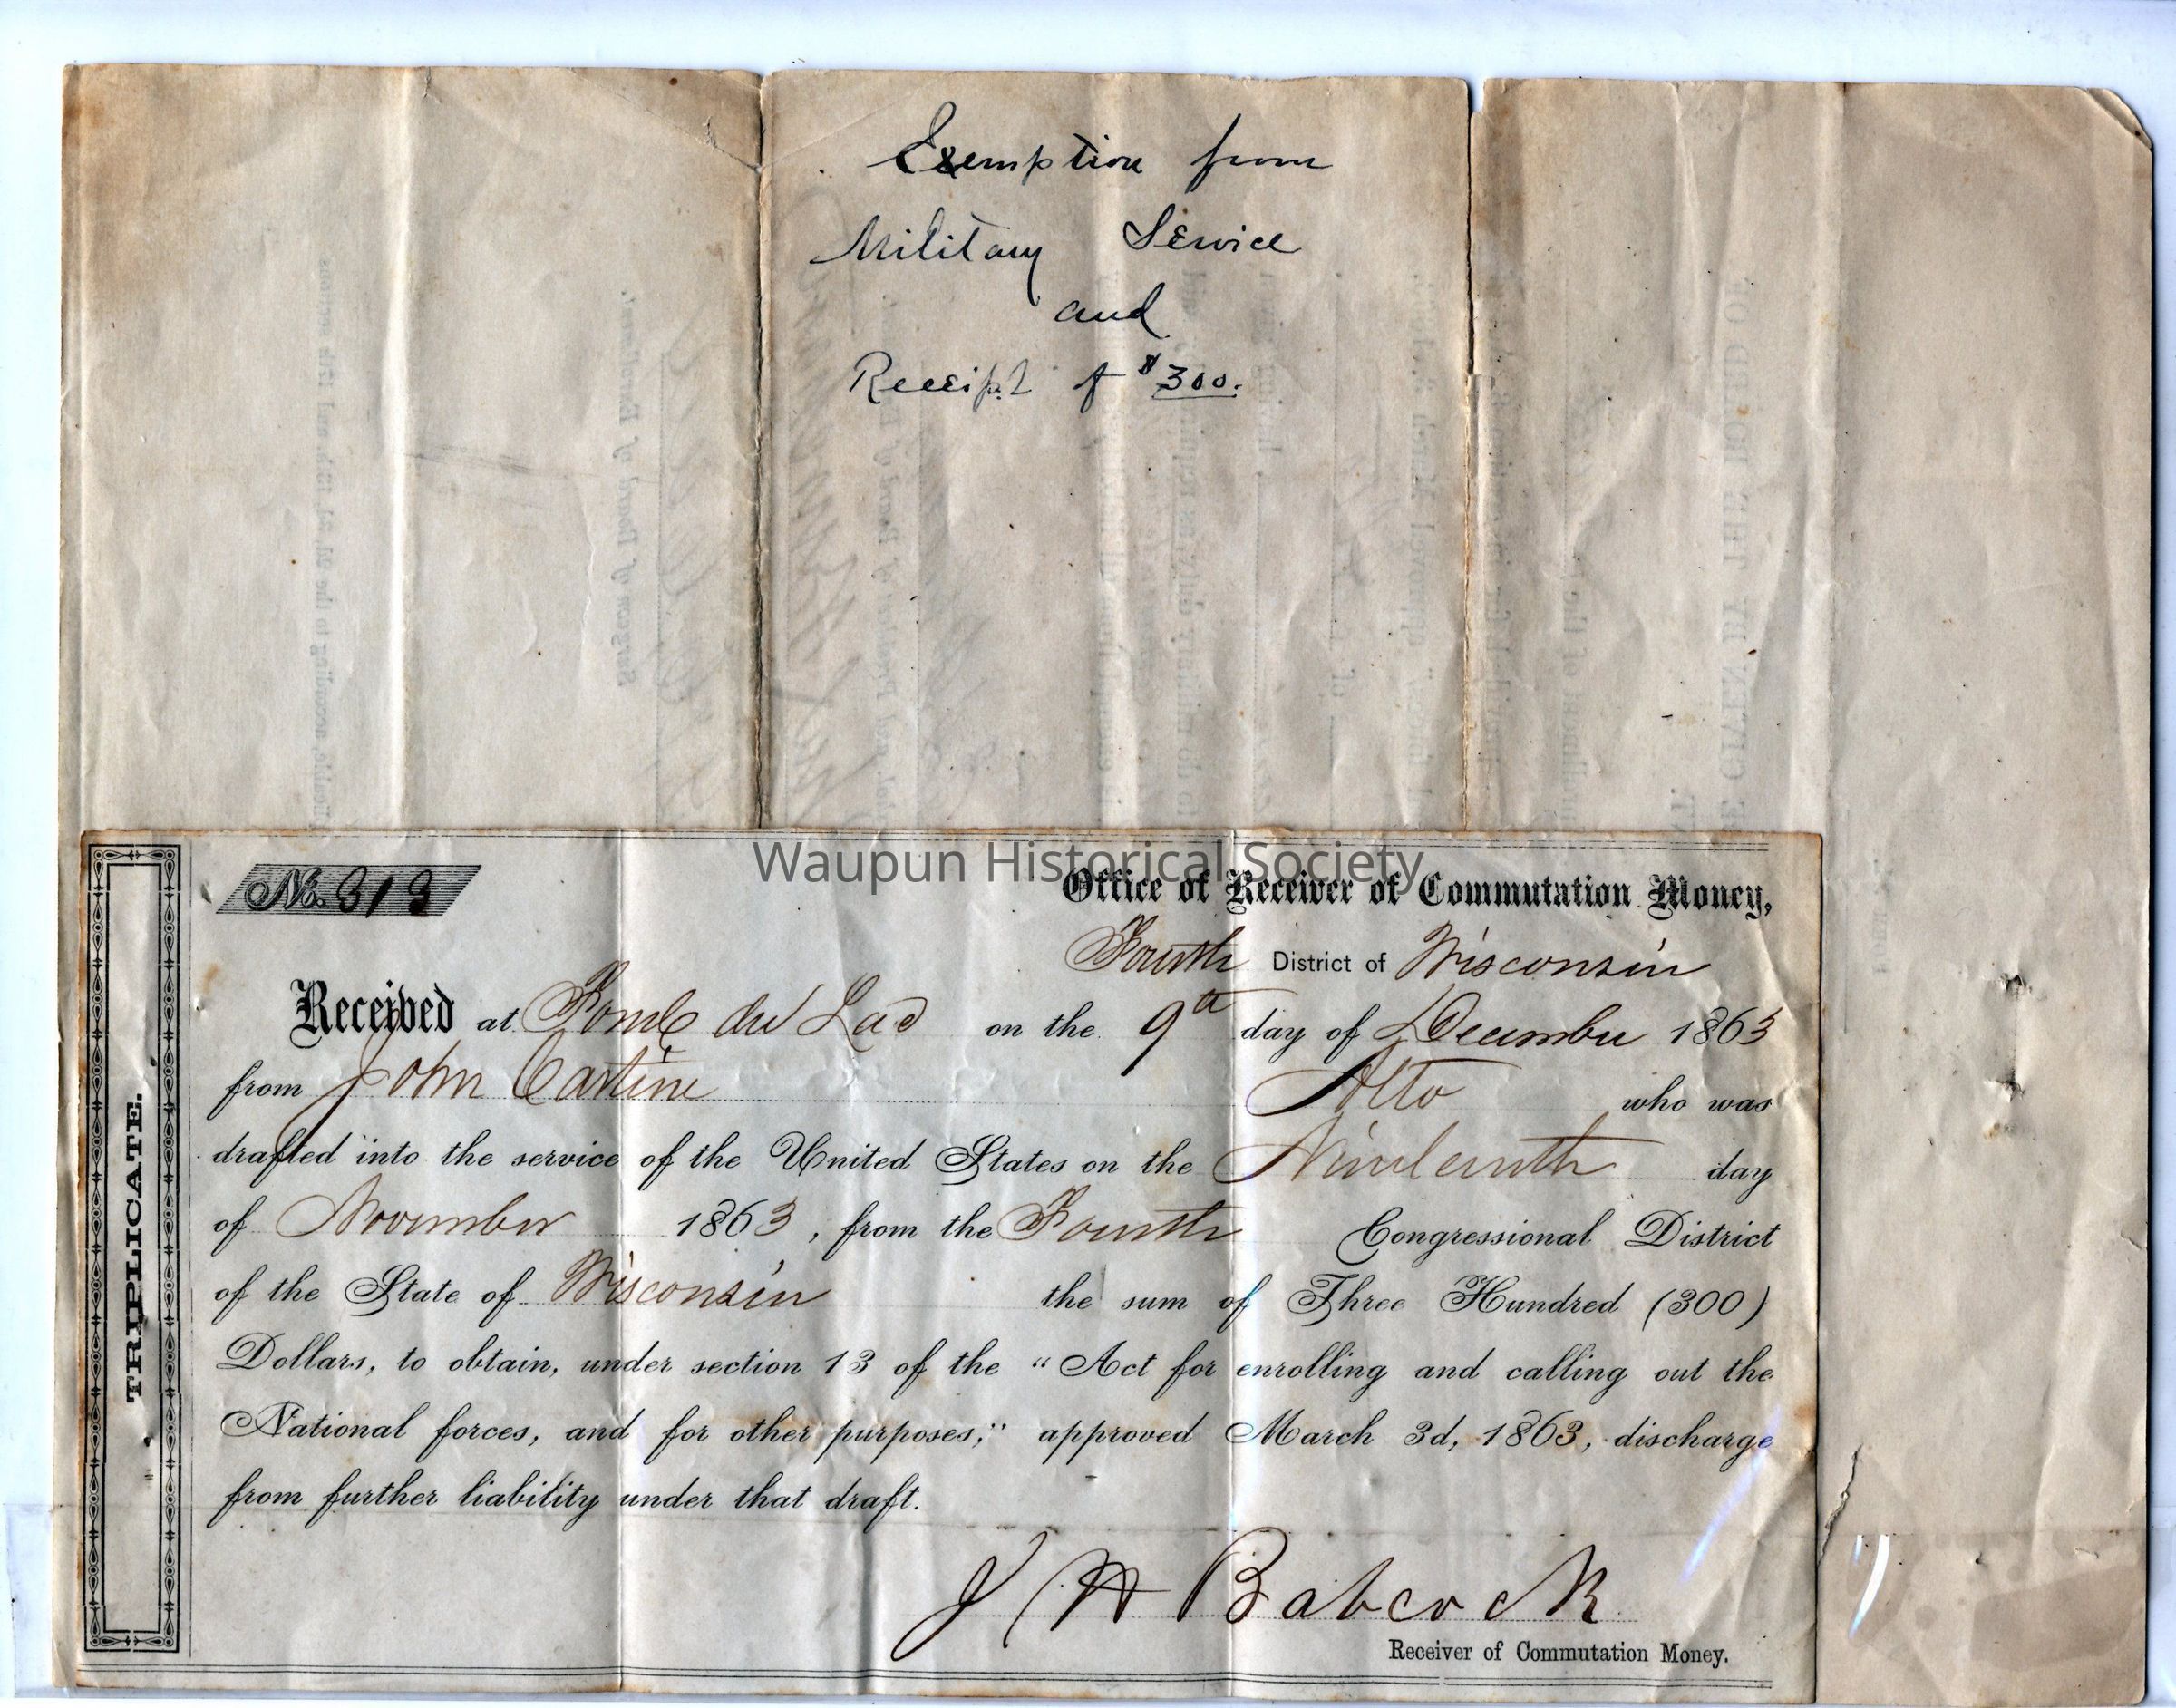 Exemption from
Military Service
and
Receipt of $300.
Waupun Historical Society
TRIPLICATE.
No. 313
Office of Receiver of Commutation Money,
Fourth District of Wisconsin
Received at Fond du Lac on the 9th day of December 1863
from John Castine Alto who was
drafted into the service of the United States on the Nineteenth day
of November 1863, from the Fourth Congressional District
of the State of Wisconsin the sum of Three Hundred (300)
Dollars, to obtain, under section 13 of the "Act for enrolling and calling out the
National forces, and for other purposes;" approved March 3d, 1863, discharge
from further liability under that draft.
J H Babcock
Receiver of Commutation Money.